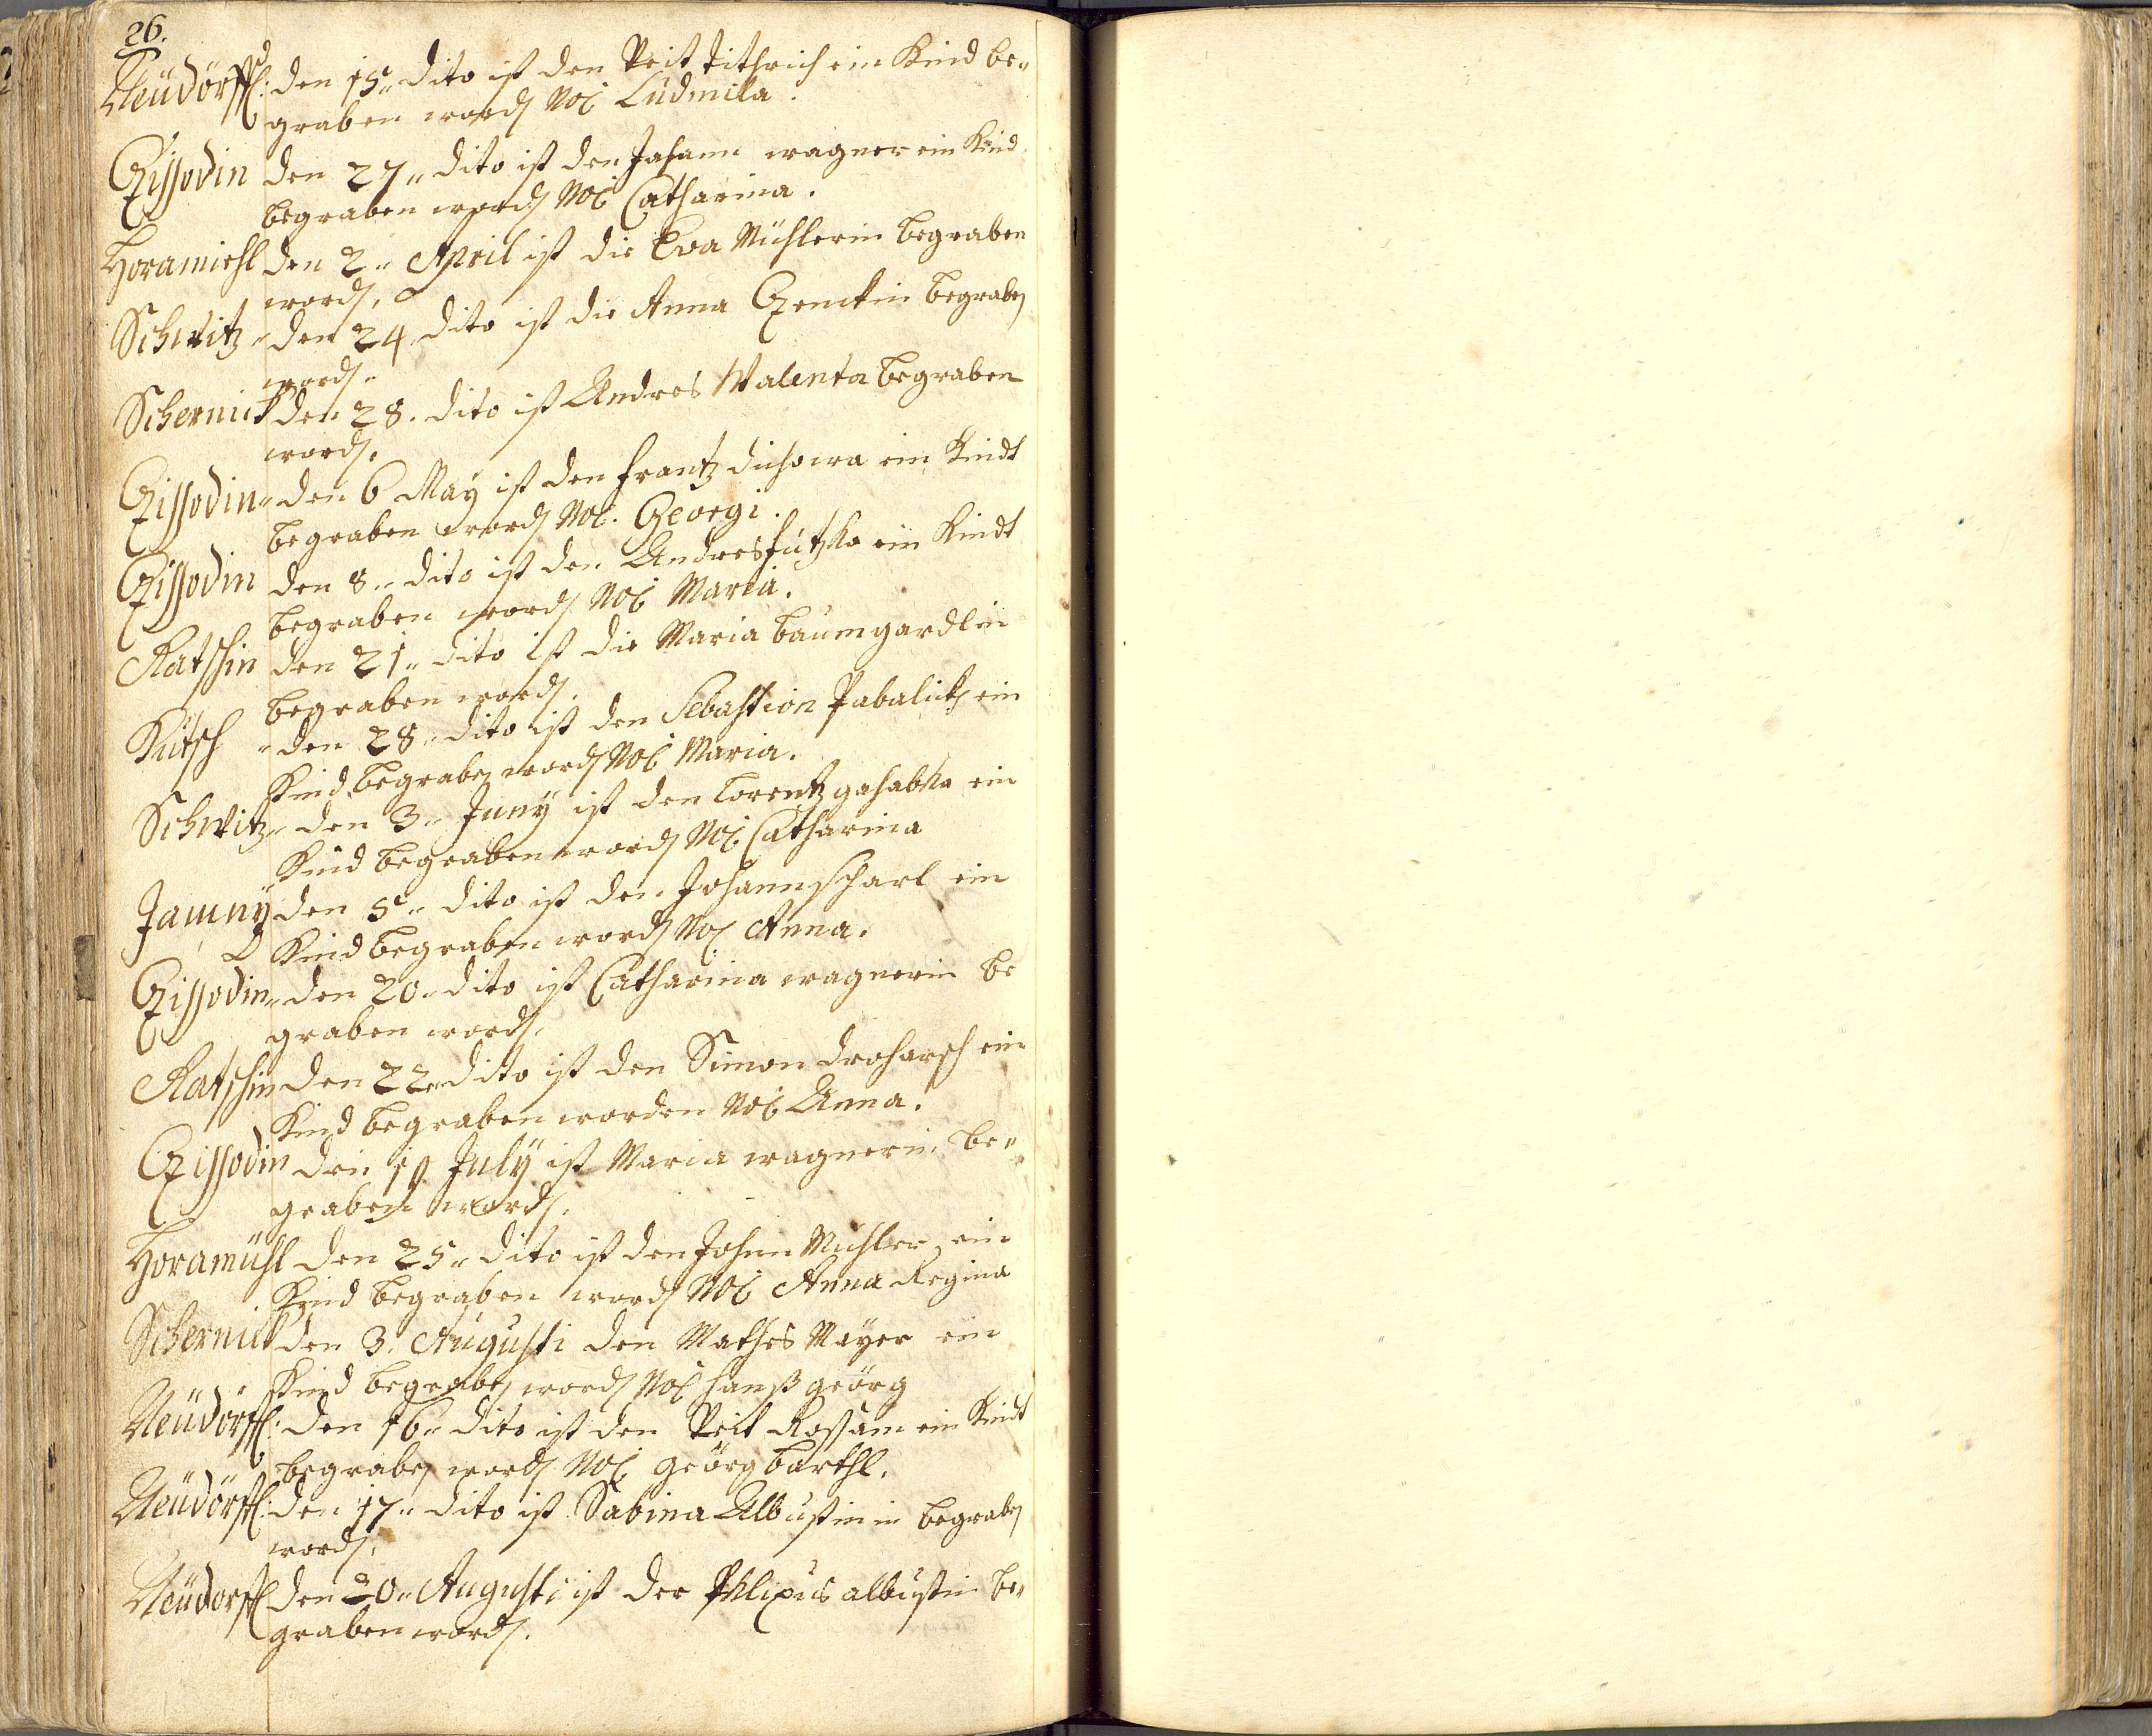 26.
Neüdörffl: den 15.. dito ist den Veit Tithrich ein Kind be„
graben word, No͠e Ludmila.
Czissodin den 27.. dito ist den Johann wagner ein Kind
begraben word, No͠e Catharina.
Horamiehl den 2.. April ist die Eva Mühlerin begraben
word,
Schwitz „ den 24 dito ist die Anna begrab,
word,
Schernick den 28. dito ist Andres Walenta begraben
word,
Czissodin „ den 6 May ist den frantz ein Kindt
begraben word, No͠e. Georgi.
Czissodin den 8.. dito ist den Andres ein Kindt
begraben word, No͠e Maria.
Ratschin den 21.. dito ist die Maria baumgardlin
begraben word,
Kutsch „ den 28.. dito ist den Sebastion ein
Kind begrab, word, No͠e Maria.
Schwitz „ den 3.. Juny ist den Lorentz ein
Kind begraben word, No͠e Catharina
Jamný den 5.. dito ist den Johann scharl ein
Kind begraben word, No͠e Anna.
Czissodin „ den 20.. dito ist Catharina wagnerin be
graben word,
Ratschin den 22.. dito ist den Simon ein
Kind begraben worden No͠e Anna.
Czissodin den 19 July ist Maria wagnerin be„
graben word,
Horamühl den 25.. dito ist den Johan Mühler ein
Kind begraben word, No͠e Anna Regina
Schernick den 3. Augusti den Mathes Mayer ein
Kind begrab, word, No͠e hanß geörg
Neüdörffl: den 16.. dito ist den Veit ein Kindt
begrab, word, No͠e geörg barthl.
Neüdörffl: den 17.. dito ist Sabina Albustinin begrab,
word,
Neüdorffl den 20.. Augusti ist der Philipus albustin be„
graben word,